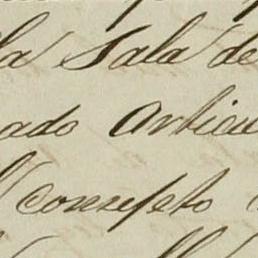 la Sala de
ado Articu
Concepto